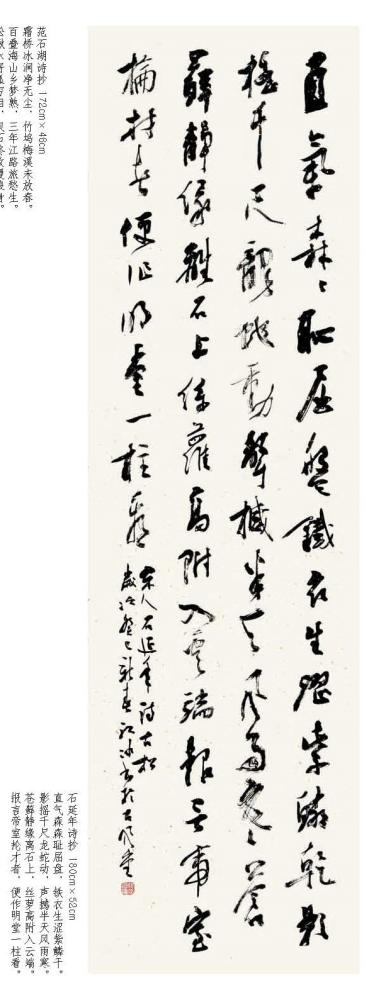 直气森森耻屈盘铁衣生涩紫鳞乾影
摇千尺龙蛇动声撼半天风雨寒苍
藓静缘离石上丝萝高附入云端报言帝室
抡材者便作明堂一柱看
宋人石延年诗古松
石延年诗抄 180cm×52cm
直气森森耻屈盘，铁衣生涩紫鳞干。
影摇千尺龙蛇动，声撼半天风雨寒。
苍藓静缘离石上，丝萝高附入云端。
报言帝室抡才者，便作明堂一柱看。
范石湖诗抄 172cm×46cm
霜桥冰涧净无尘，竹坞梅溪未放春。
百叠海山乡梦熟，三年江路旅愁生。